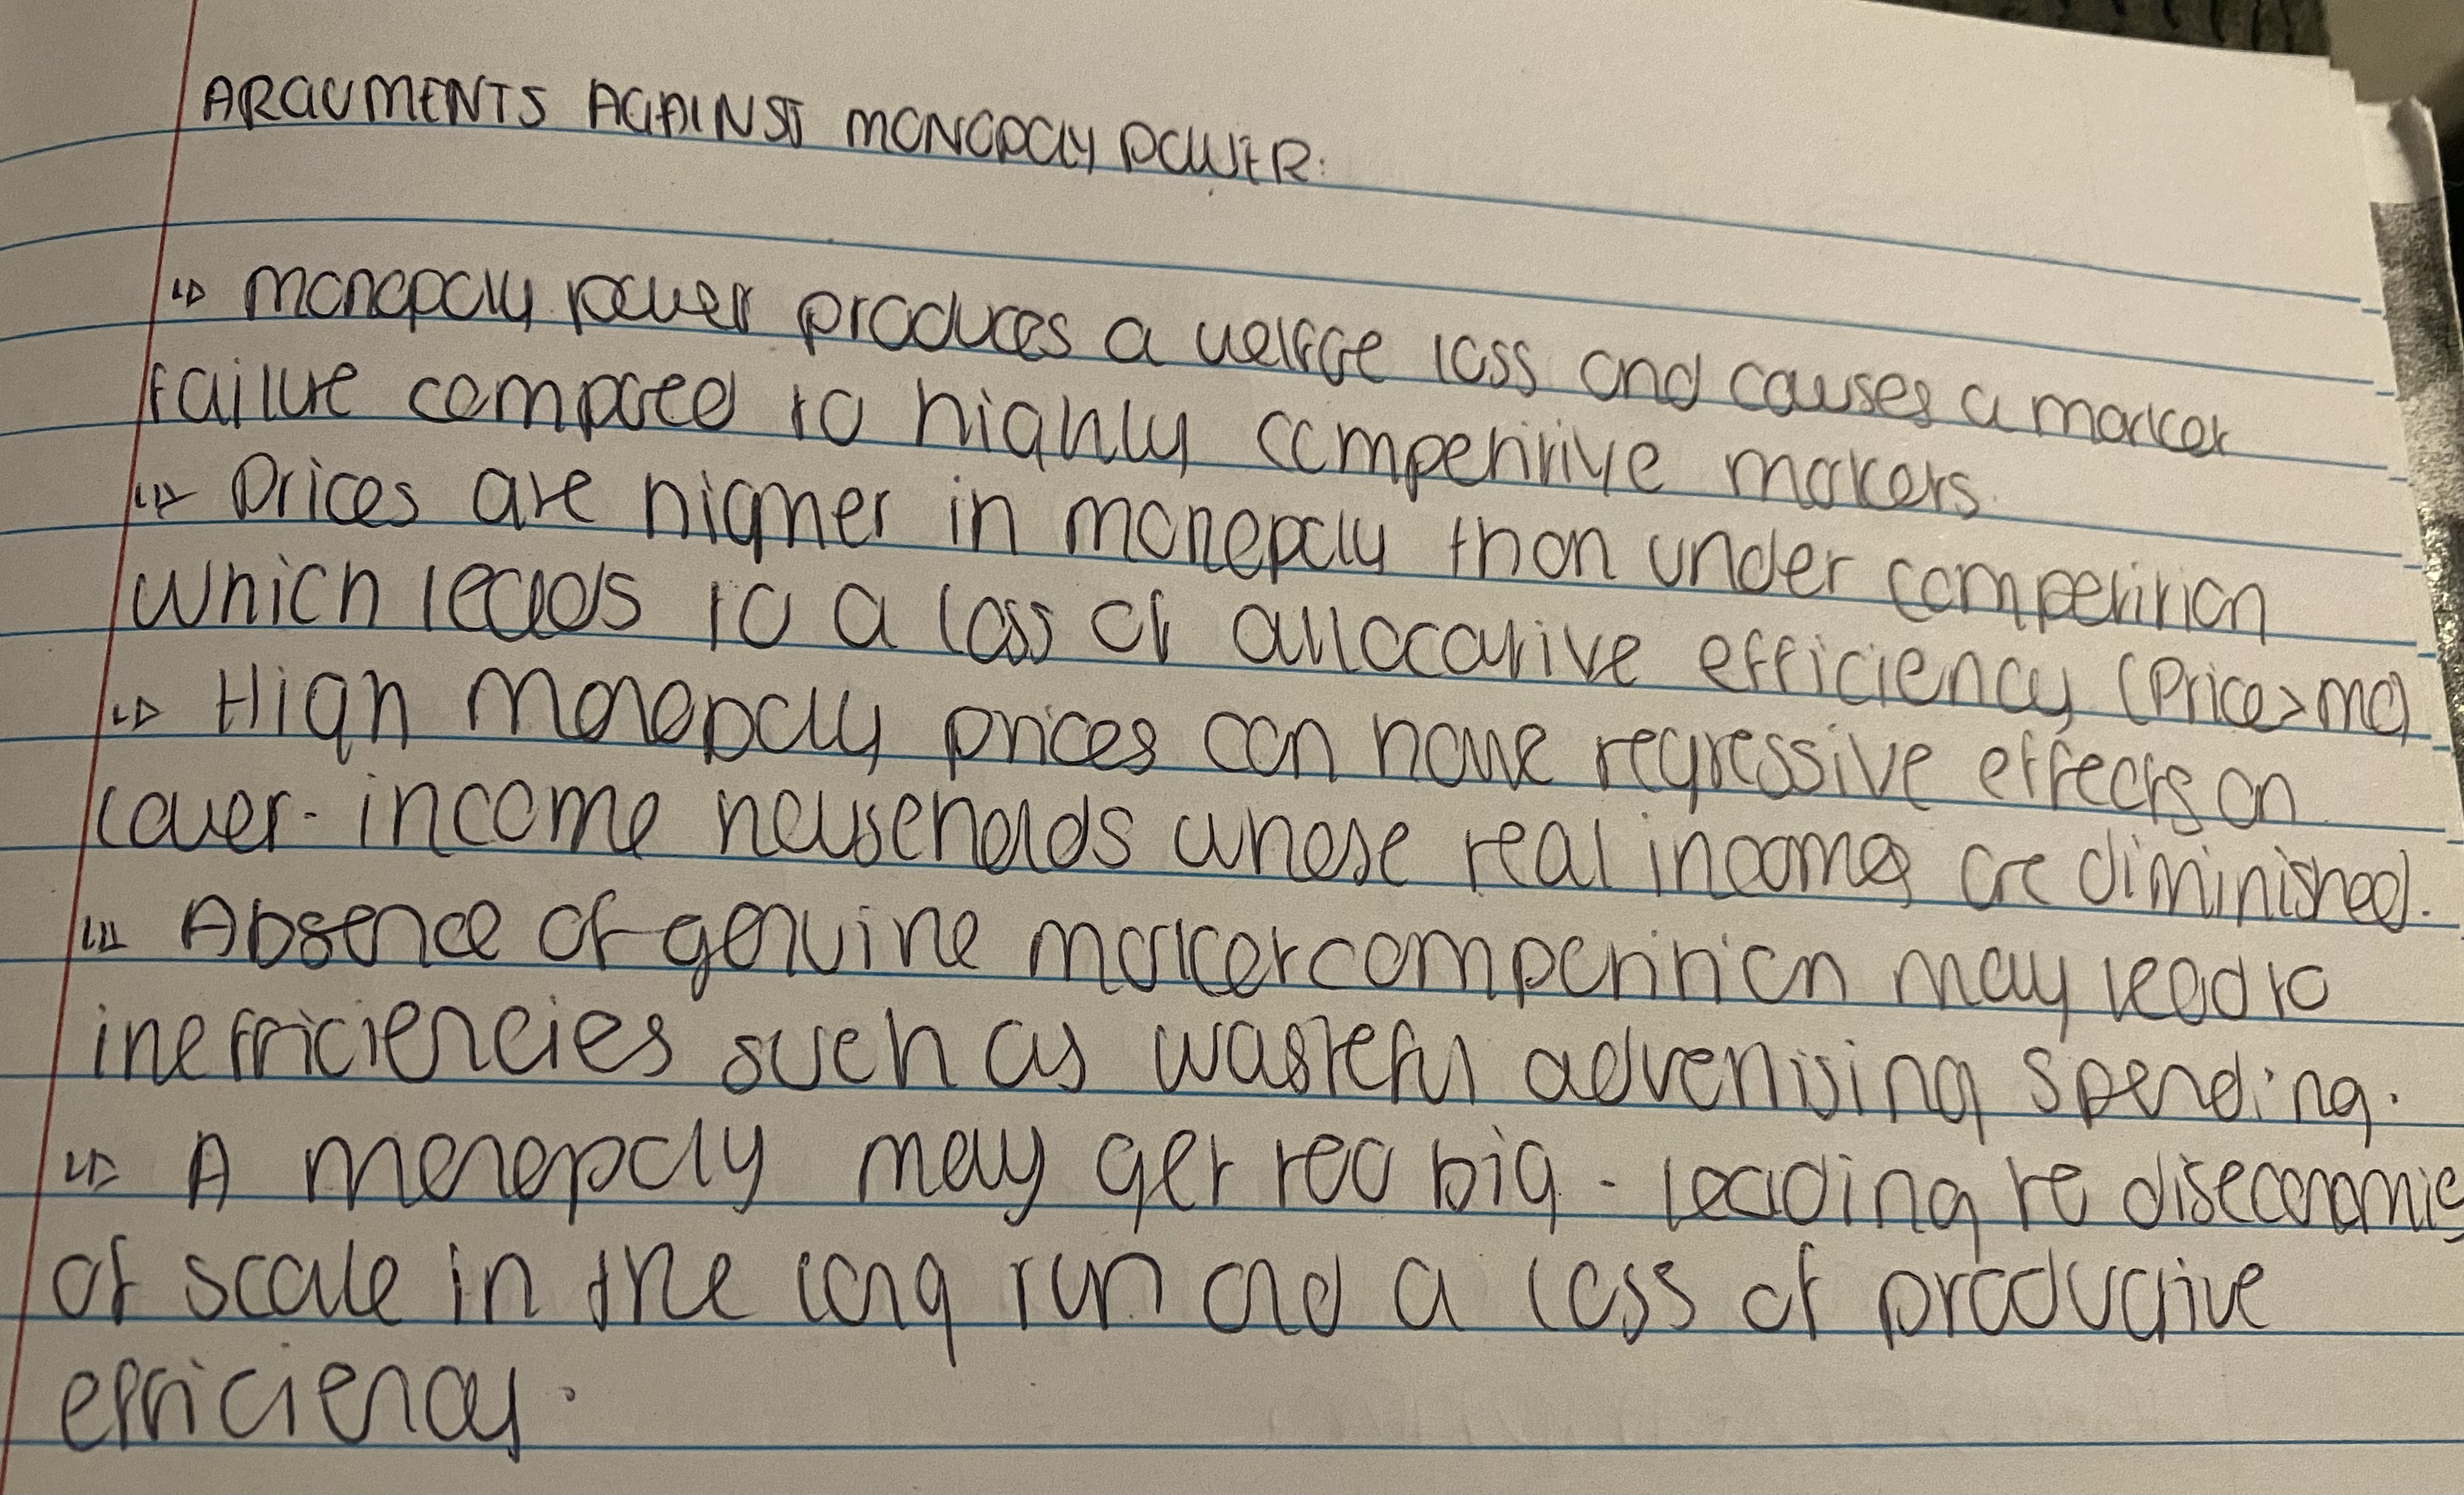 ARGUMENTS AGAINST MONOPOLY POWER:
↳ monopoly power produces a welfare loss and causes a market
failure compared to highly competitive markets.
↳ Prices are higher in monopoly than under competition
which leads to a loss of allocative efficiency (Price > mc)
↳ High monopoly prices can have regressive effects on
lower-income households whose real incomes are diminished.
↳ Absence of genuine market competition may lead to
inefficiencies such as wasteful advertising spending.
↳ A monopoly may get too big - leading to diseconomies
of scale in the long run and a loss of productive
efficiency.